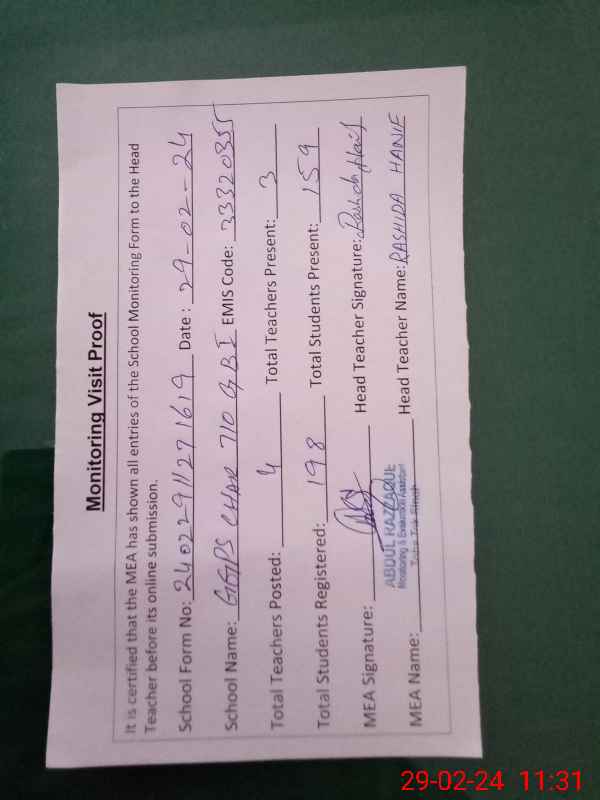 Monitoring Visit Proof
It is certified that the MEA has shown all entries of the School Monitoring Form to the Head
Teacher before its online submission.
School Form No: 24022911271619 Date : 29-02-24
School Name: GGPS CHAK 710 GB I EMIS Code: 33320355
Total Teachers Posted: 4 Total Teachers Present: 3
Total Students Registered: 198 Total Students Present: 159
MEA Signature: Head Teacher Signature: Rashda Hanif
ABDUL RAZZAQUE
Monitoring & Evaluation Assistant
Toba Tek Singh
MEA Name: Head Teacher Name: RASHIDA HANIF
29-02-24 11:31